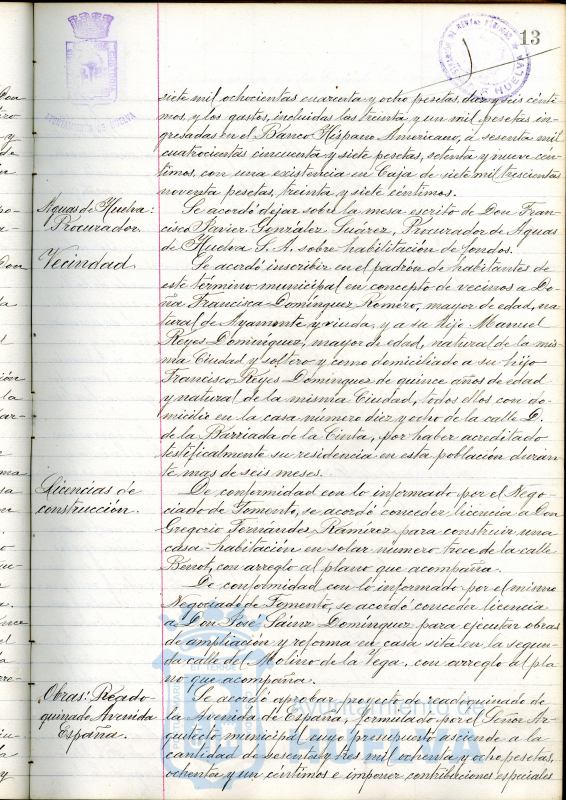 13
AYUNTAMIENTO DE HUELVA
HUELVA
siete mil ochocientas cuarenta y ocho pesetas, diez y seis cénti-
mos, y los gastos, incluidas las treinta y un mil pesetas in-
gresadas en el Banco Hispano Americano, a sesenta mil
cuatrocientas cincuenta y siete pesetas, setenta y nueve cén-
timos, con una existencia en Caja de siete mil trescientas
noventa pesetas, treinta y siete céntimos.
Aguas de Huelva:
Procurador.
Se acordó dejar sobre la mesa escrito de Don Fran-
cisco Javier González Suárez, Procurador de Aguas
de Huelva S. A. sobre habilitación de fondos.
Vecindad
Se acordó inscribir en el padrón de habitantes de
este término municipal en concepto de vecinos a Do-
ña Francisca Domínguez Romero, mayor de edad, na-
tural de Ayamonte y viuda, y a su hijo Manuel
Reyes Domínguez, mayor de edad, natural de la mis-
ma Ciudad y soltero y como domiciliado a su hijo
Francisco Reyes Domínguez de quince años de edad
y natural de la misma Ciudad, todos ellos con do-
micilio en la casa número diez y ocho de la calle D.
de la Barriada de la Cinta, por haber acreditado
testificalmente su residencia en esta población duran-
te mas de seis meses.
Licencias de
construcción.
De conformidad con lo informado por el Nego-
ciado de Fomento, se acordó conceder licencia a Don
Gregorio Fernández Ramírez para construir una
casa-habitación en solar número trece de la calle
Benot, con arreglo al plano que acompaña.
De conformidad con lo informado por el mismo
Negociado de Fomento, se acordó conceder licencia
a Don José Sáinz Domínguez para ejecutar obras
de ampliación y reforma en casa sita en la segun-
da calle del Molino de la Vega, con arreglo al pla-
no que acompaña.
Obras: Reado-
quinado Avenida
España.
Se acordó aprobar proyecto de readoquinado de
la Avenida de España, formulado por el Señor Ar-
quitecto municipal cuyo presupuesto asciende a la
cantidad de sesenta y tres mil ochenta y ocho pesetas,
ochenta y un céntimos e imponer contribuciones especiales
Ayuntamiento de
HUELVA